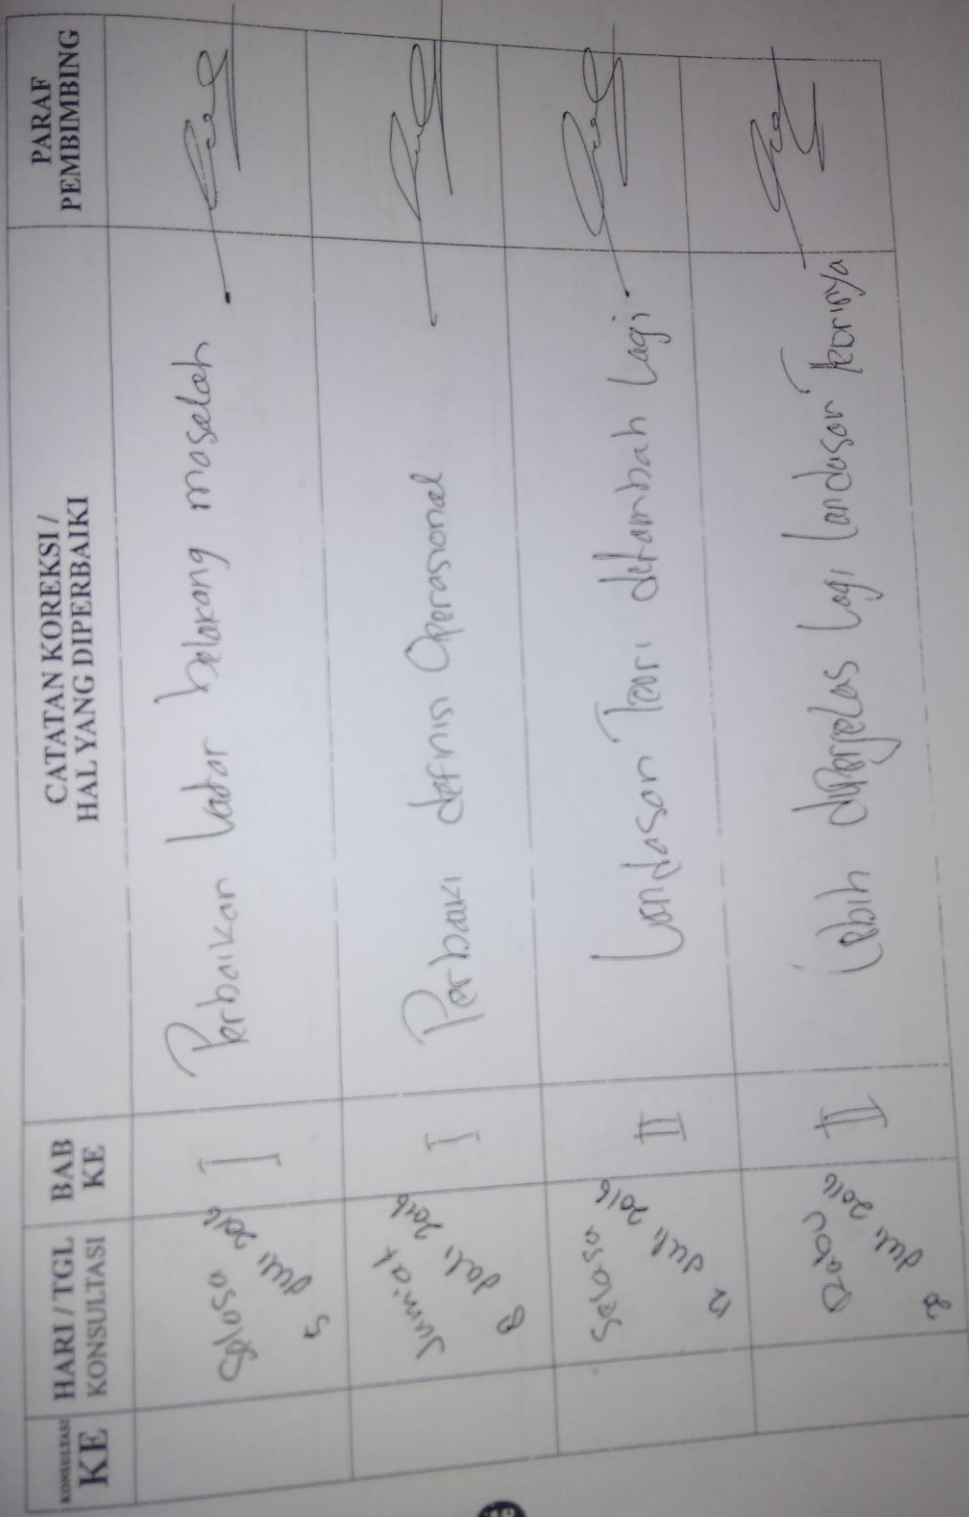 KONSULTASI KE
HARI / TGL KONSULTASI
BAB KE
CATATAN KOREKSI / HAL YANG DIPERBAIKI
PARAF PEMBIMBING
Selasa
5 Juli 2016
I
Perbaikan Latar belakang masalah
Jum'at
8 Juli 2016
I
Perbaiki definisi Operasional
Selasa
12 Juli 2016
II
Landasan Teori ditambah Lagi
Rabu
Juli 2016
II
Lebih diperjelas Lagi Landasan Teorinya